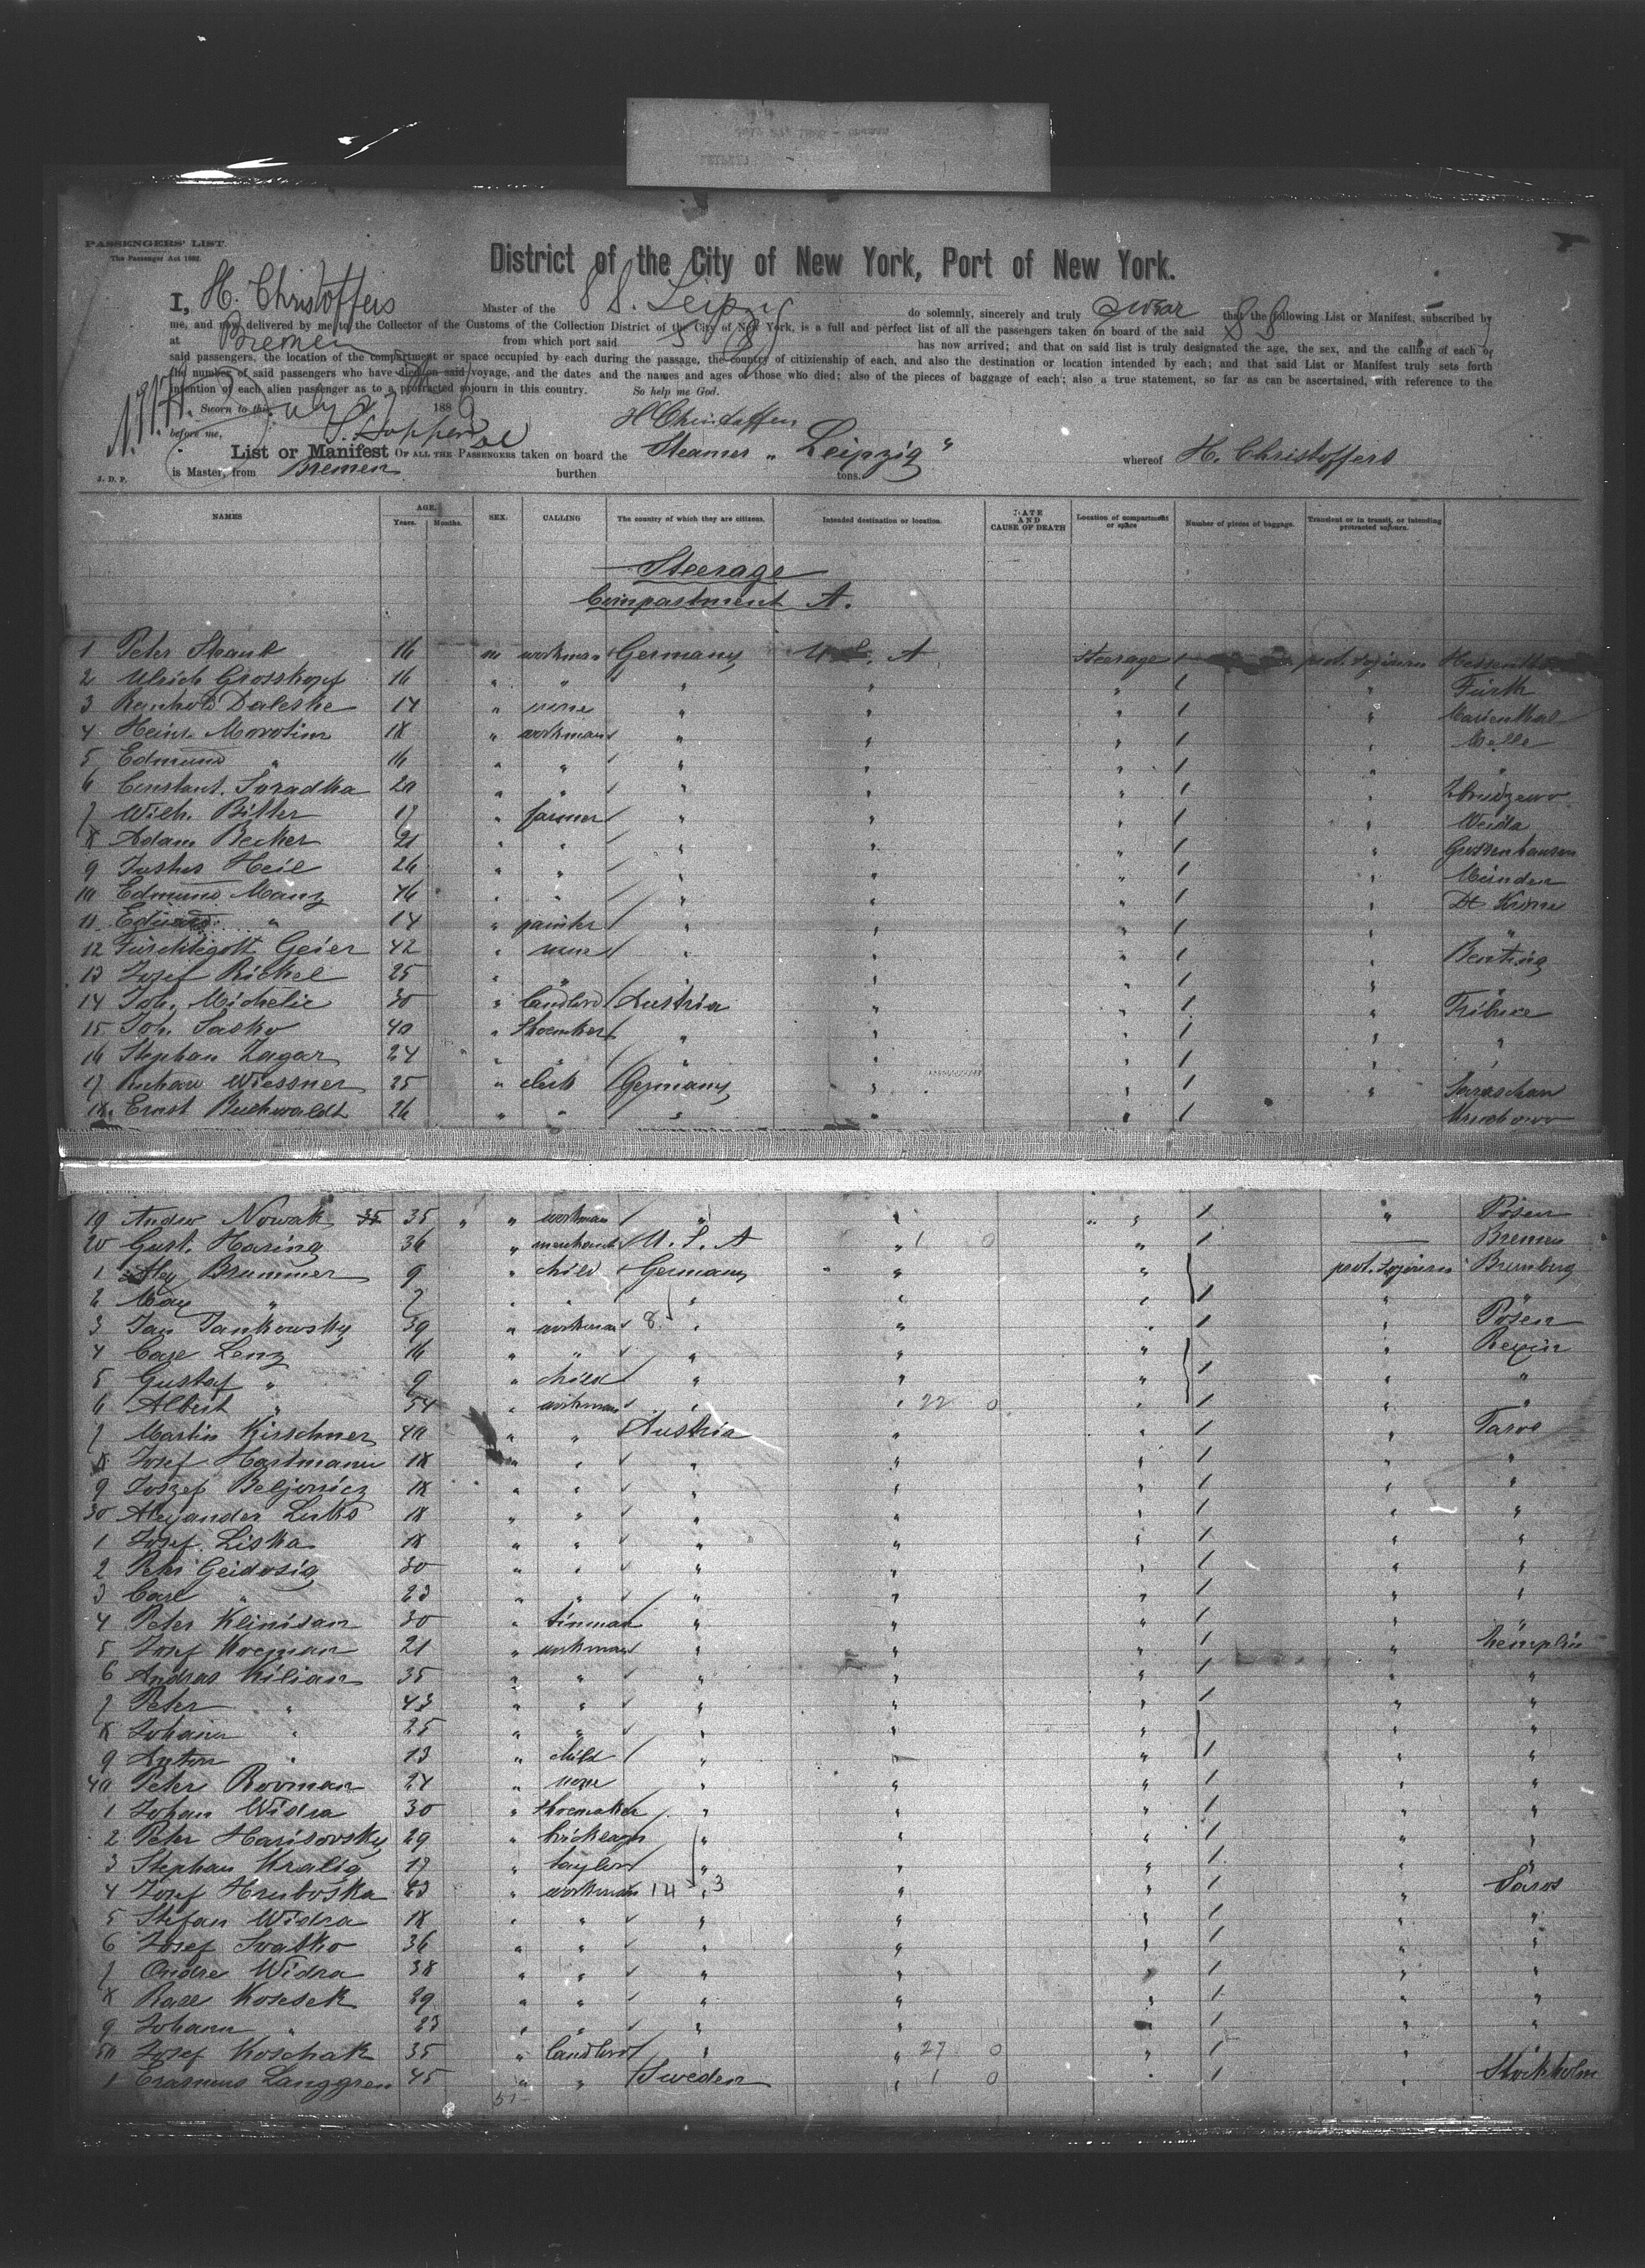 PASSENGERS' LIST.
The Passenger Act 1882.
District of the City of New York, Port of New York.
I, H. Christoffers Master of the SS. Leipzig do solemnly, sincerely and truly swear that the following List or Manifest, subscribed by
me, and now delivered by me to the Collector of the Customs of the Collection District of the City of New York, is a full and perfect list of all the passengers taken on board of the said SS
at Bremen from which port said SS has now arrived; and that on said list is truly designated the age, the sex, and the calling of each of
said passengers, the location of the compartment or space occupied by each during the passage, the country of citizienship of each, and also the destination or location intended by each; and that said List or Manifest truly sets forth
the number of said passengers who have died on said voyage, and the dates and the names and ages of those who died; also of the pieces of baggage of each; also a true statement, so far as can be ascertained, with reference to the
intention of each alien passenger as to a protracted sojourn in this country. So help me God.
Sworn to this July 27 1886 H Christoffers
before me,
List or Manifest OF ALL THE PASSENGERS taken on board the Steamer " Leipzig " whereof H. Christoffers
J. D. P. is Master, from Bremen burthen tons.
NAMES AGE. Years. Months. SEX. CALLING The country of which they are citizens. Intended destination or location. DATE AND CAUSE OF DEATH Location of compartment or space Number of pieces of baggage. Transient or in transit, or intending protracted sojourn.
Steerage
Compartment A.
1 Peter Straub 16 m workman Germany U.S. A steerage 1 prot. sojourn
2 Ulrich Grosskopf 16 " " " " " 1 " Fürth
3 Reinhold Daleske 14 " none " " " 1 " Marienthal
4 Heinr. Morotini 18 " workman " " " 1 " Melle
5 Edmund " 16 " " " " " 1 " "
6 Constant. Suradka 20 " " " " " 1 "
7 Wilh. Bitter 17 " farmer " " " 1 " Weida
8 Adam Becker 21 " " " " " 1 " Grossenhausen
9 Justus Heil 26 " " " " " 1 " Münden
10 Edmund Manz 46 " " " " " 1 " Dt Krone
11 Eduard " 14 " painter " " " 1 " "
12 Fürchtegott Geier 42 " none " " " 1 "
13 Josef Rickel 25 " " " " " 1 "
14 Joh. Michelic 30 " landlord Austria " " 1 " Tribuce
15 Joh. Sasko 40 " Shoemker " " " 1 " "
16 Stephan Zagar 24 " " " " " 1 "
17 Richard Wiessner 25 " clerk Germany " " 1 "
18 Ernst Buchwaldt 26 " " " " " 1
19 Andr Nowak 35 35 " " workman " " " 1 " Posen
20 Gust. Haring 36 " merchant U. S. A " 1 0 " 1 — Bremen
1 Alex Brummer 9 " child Germany " " prot. sojourn Bromberg
2 Max " 7 " " " " " 1 " "
3 Jan Jankowsky 39 " workman 8 " " " 1 " Posen
4 Carl Lenz 16 " " " " " " Rexin
5 Gustaf " 9 " child " " " 1 " "
6 Albert " 54 " workman " " 22 0 " 1 " "
7 Martin Kirschner 40 " " Austria " " 1 " Saros
8 Josef Hartmann 18 " " " " " 1 " "
9 Joszef Beljovicz 18 " " " " " 1 " "
30 Alexander Luks 18 " " " " " 1 " "
1 Josef Liska 18 " " " " " 1 " "
2 Petr Geidosig 30 " " " " " 1 " "
3 Carl " 23 " " " " " 1 " "
4 Peter Klinisan 30 " tinman " " " 1 " "
5 Josef Kocman 21 " workman " " " 1 " Zemplin
6 Andras Kilian 35 " " " " " 1 " "
7 Peter " 43 " " " " " 1 " "
8 Johann " 25 " " " " " " "
9 Anton " 13 " child " " " 1 " "
40 Peter Rovman 24 " none " " " 1 " "
1 Johan Widra 30 " Shoemaker " " " 1 " "
2 Peter Harisovsky 29 " " " " 1 " "
3 Stephan Kralig 17 " taylor " " " 1 " "
4 Josef Hruboska 23 " workman 14 3 " " " 1 " Saros
5 Stefan Widra 18 " " " " " 1 " "
6 Josef Svatko 36 " " " " " 1 " "
7 Ondre Widra 38 " " " " " 1 " "
8 Karl Kossek 29 " " " " " 1 " "
9 Johann " 23 " " " " " 1 " "
50 Josef Koschak 35 " landlord " " 27 0 " 1 " "
1 Erasmus Langgren 45 " " Sweden " 1 0 " 1 " Stockholm
51